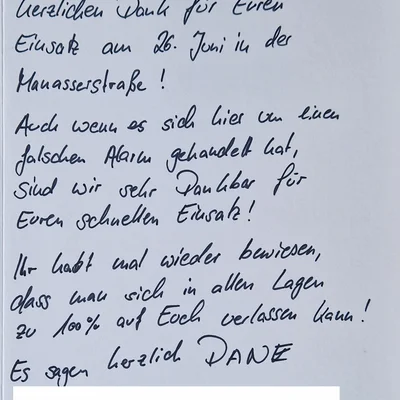 herzlichen Dank für Euren
Einsatz am 26. Juni in der
Manasserstraße!
Auch wenn es sich hier um einen
falschen Alarm gehandelt hat,
sind wir sehr Dankbar für
Euren schnellen Einsatz!
Ihr habt mal wieder bewiesen,
dass man sich in allen Lagen
zu 100% auf Euch verlassen kann!
Es sagen herzlich DANE